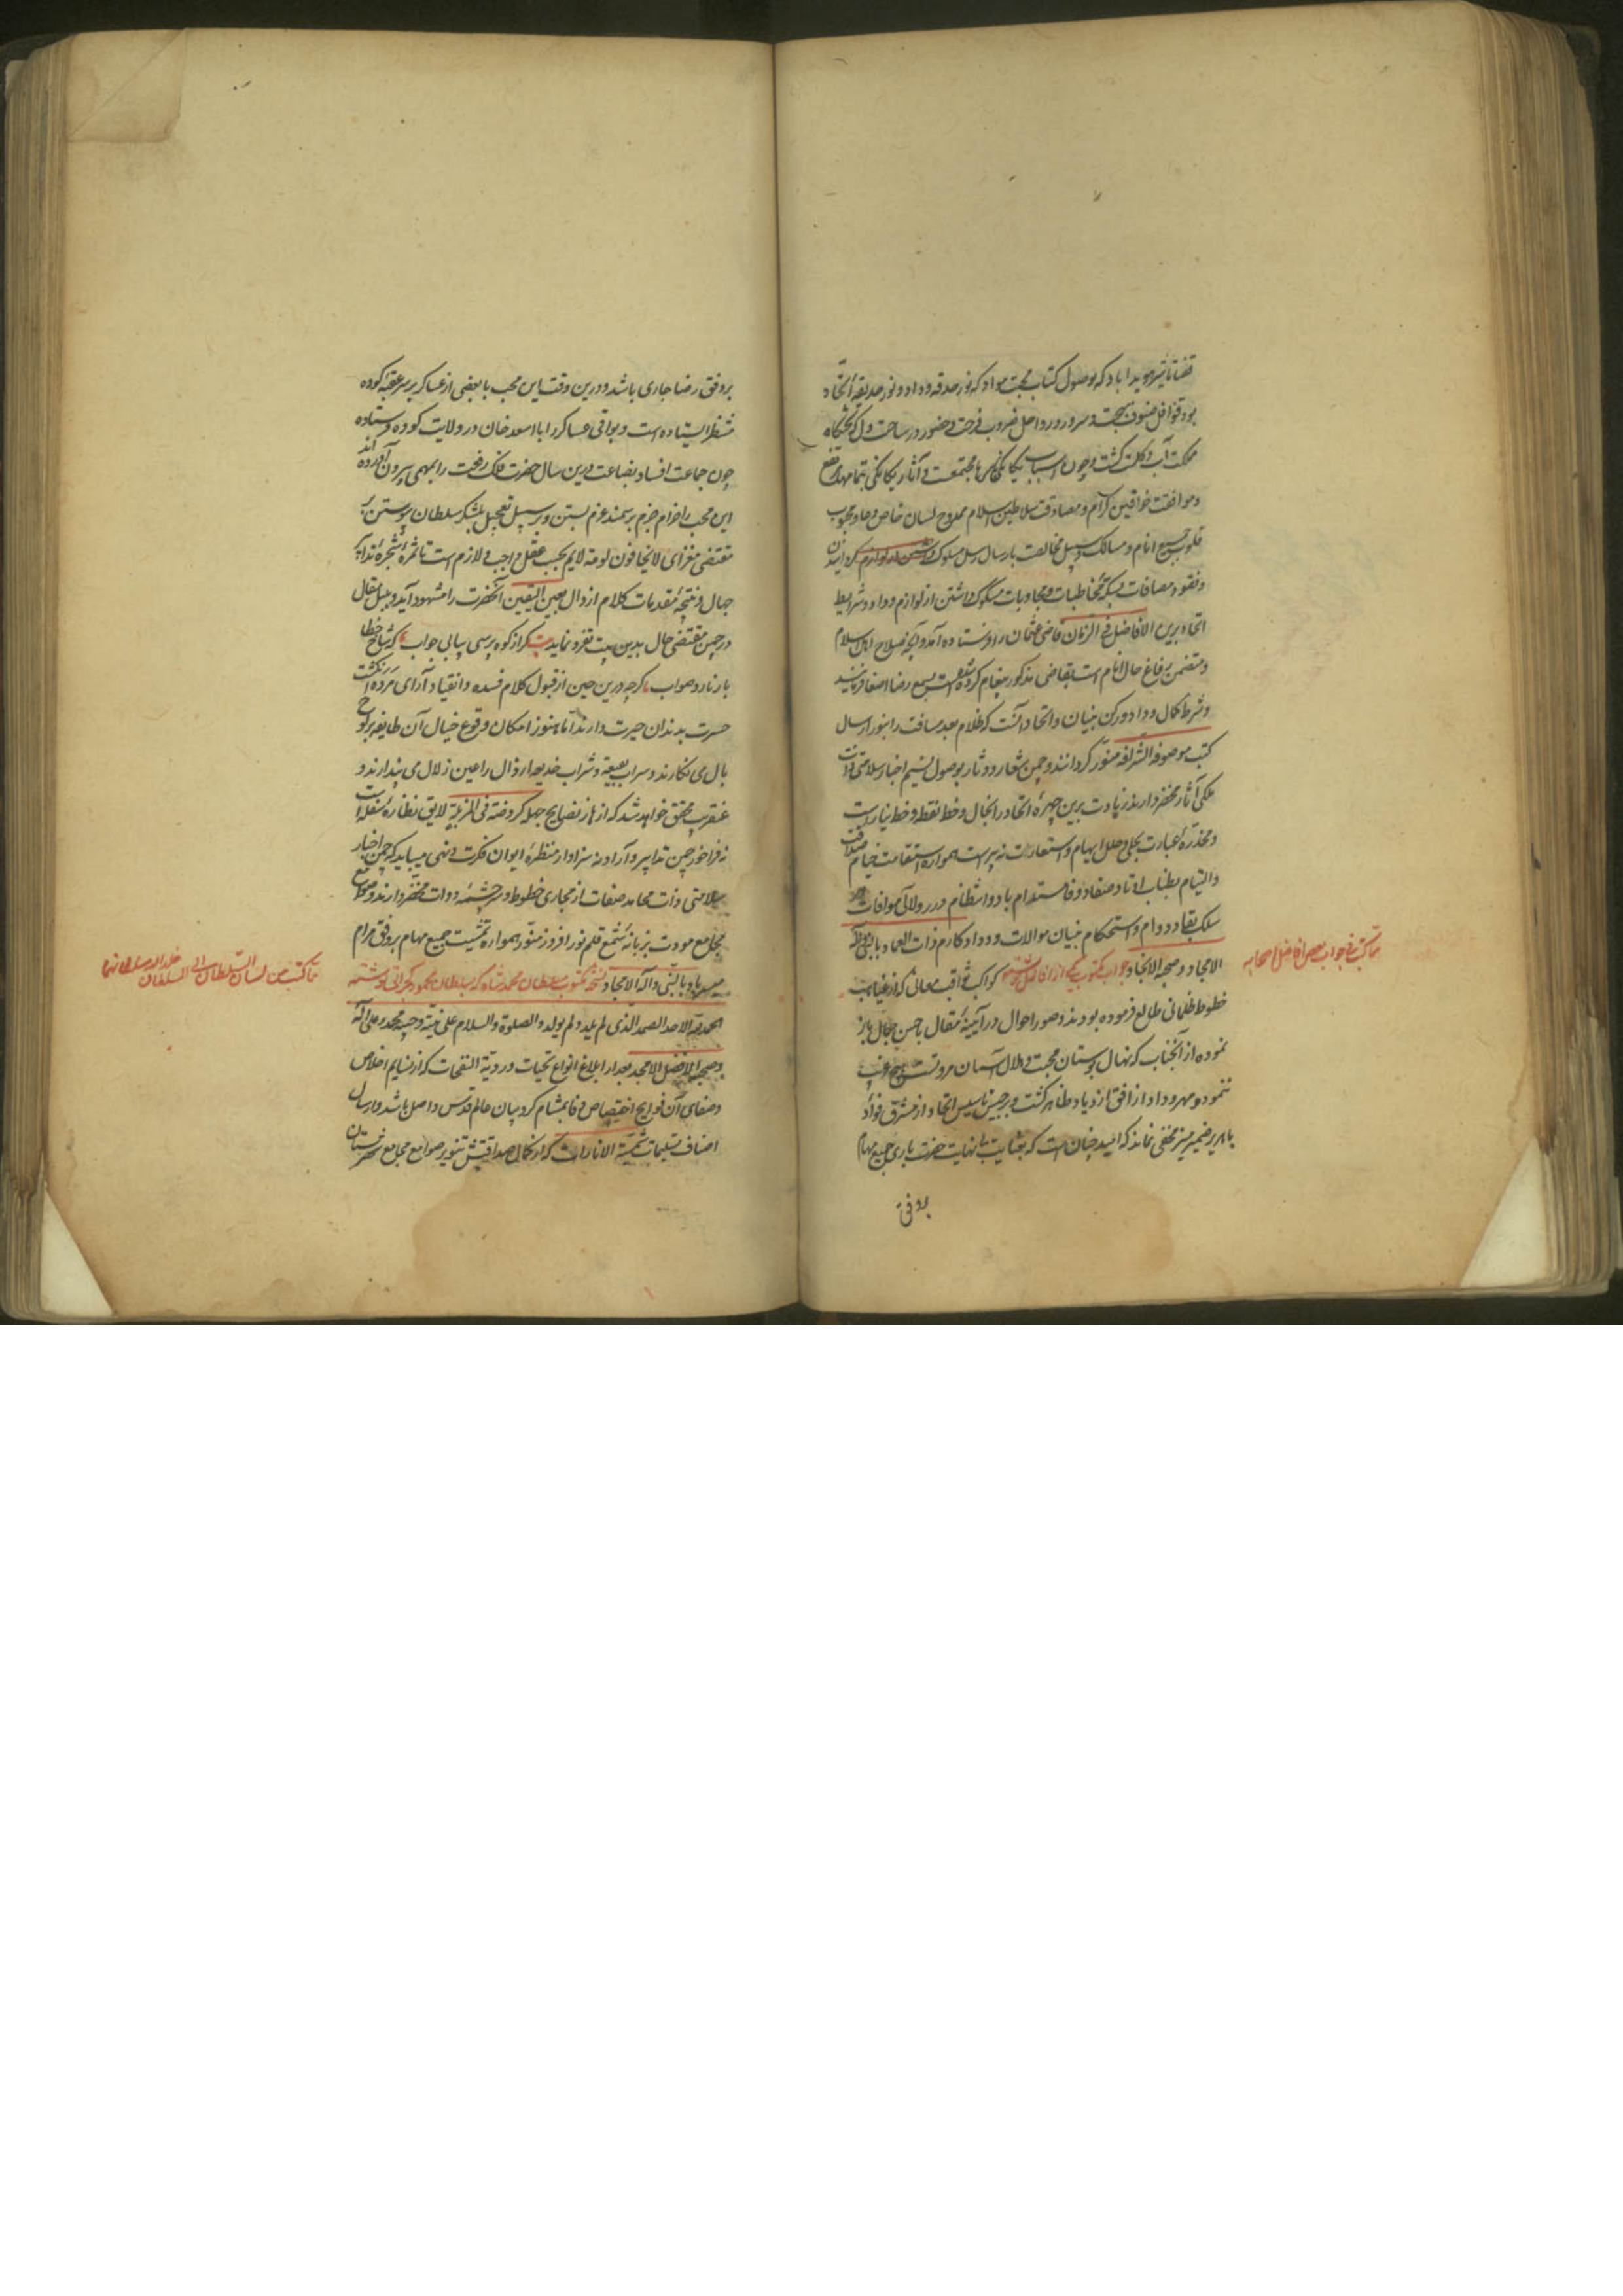 قضا تاثیر هویدا باد که بوصول کتاب محبت مواد که نور حدقه وداد و نور حدیقه اتحاد
بود قوافل صنوف بهجت و سرور و رواحل ضروب فرحت و حضور در ساحت دل که تختگاه
مملکت آب و گلست گشت و چون اسباب یگانگی مجتمعست و آثار بیگانگی بتمامها مرتفع
و موافقت خواقین کرام و مصادقت سلاطین اسلام ممدوح لسان خاص و عام و محبوب
قلوب جمیع انام و مسالک و سبل مخالصت بارسال رسل مسلوک گردانیدن
و نقود مصافات بسکه مخاطبات و مجاوبات مسکوک داشتن از لوازم وداد و شرایط
اتحاد برین الافاضل فی الزمان قاضی عثمان را فرستاده آمد و آنچه صلاح اهل اسلام
و متضمن رفاغ حال انام است بقاضی مذکور پیغام کرده شده است بسمع رضا اصغا فرمایند
و شرط کمال وداد و رکن بنیان و اتحاد آنست که ظلام بعد مسافت را بنور ارسال
کتب موصوفه الشرافه منور گردانند و چمن شعار و دثار بوصول نسیم اخبار سلامتی ذات
ملکی آثار مخضر دارند زیادت برین چهره اتحاد را بخال و خط نقطه و خط نیاراست
و مخدره عبارت بحلی و حلل ایهام و استعارت نه پیراست همواره استقامت خیام صداقت
و التیام بطناب اوتاد صفا و وفا مستدام باد و انتظام درر و لآلی موافات در
سلک بقا و دوام و استحکام بنیان موالات و وداد کارم ذات العماد بالنبی و آله
الامجاد و صحبه الانجاد جواب مکتوب یکی از افاضل نوشته کواکب ثواقب معالی که از غیاهب
خطوط ظلمانی طالع فرموده بودند و صور احوال در آیینه مقال باحسن جمال باز
نموده از آنجناب که نهال بوستان محبت و هلال آسمان مروتست
نمود و مهر وداد از افق ازدیاد ظاهر گشت و برجیس تاسیس اتحاد از مشرق فواد
باهر بر ضمیر منیر مخفی نماند که امید چنان است که بعنایت بی نهایت حضرت باری جمیع مهام
بروفق
مما کتب فی جواب بعض افاضل اصحابه
بروفق رضا جاری باشد و درین وقت این محب با بعضی از عساکر بر سر عقبه کوده
منتظر ایستاده است و بواقی عساکر را با اسعد خان در ولایت کوده فرستاده
چون جماعت افساد بضاعت درین سال حضرت فلک رفعت را بمهمی بیرون آورده اند
این محب را حزام جزم بر سمند عزم بستن و بر سبیل تعجیل بلشکر سلطان پیوستن
مقتضی مغزای لایخافون لومة لایم بحسب عقل واجب و لازم است تا ثمره شجره تدابیر
جهال و نتیجه مقدمات کلام ارذال بعین الیقین آنحضرت را مشهود آید و بلبل مقال
در چمن مقتضی حال بدین بیت تفرد نماید بیت گر از کوه پرسی بیابی جواب که شاخ خطا
بار نارد صواب اگرچه درین حین از قبول کلام فسده و انقیاد آرای مرده انگشت
حسرت بدندان حیرت دارند اما هنوز امکان وقوع خیال آن طایفه بر لوح
بال می نگارند و سراب بقیعة و شراب خدیعه ارذال را عین زلال می پندارند و
عنقریب محقق خواهد شد که ازهار نصایح جهله کروضة فی المزبلة لایق نظاره سفله است
نه فراخور چمن تدابیر و آرا و نه سزاوار منظره ایوان فکرت و نهی میباید که چمن اخبار
سلامتی ذات محامد صفات از مجاری خطوط و سرچشمه دوات مخضر دارند و صوامع
مجامع مودت بزبانه شمع قلم نور افروز منور همواره تمشیت جمیع مهام بروفق مرام
میسر باد بالنبی و آله الامجاد نسخه مکتوب سلطان محمد شاه که بسلطان محمود گجراتی نوشته
الحمد لله الاحد الصمد الذی لم یلد و لم یولد و الصلوة و السلام علی نبیه و حبیبه محمد و علی آله
و صحبه الافضل الامجد بعد از ابلاغ انواع تحیات وردیة النفحات که از نسایم اخلاص
و صفای آن فوایح اختصاص و وفا بمشام کروبیان عالم قدس واصل باشد و ارسال
اصناف تسلیمات شمسیة الانارات که از کمال صداقتش تنویر صوامع مجامع شهرستان
مما کتب من لسان السلطان الی السلطان